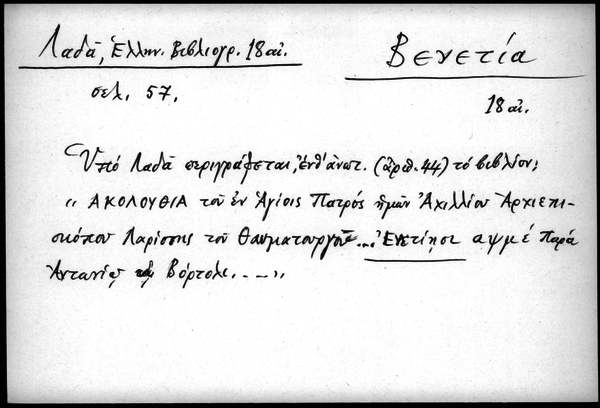 Λαδᾶ, Ἑλλην. Βιβλιογρ. 18 αἰ.
Βενετία
σελ. 57.
18 αἰ.
Ὑπό Λαδᾶ περιγράφεται, ἐνθ' ἀνωτ. (ἀριθ. 44) τό βιβλίον;
"ΑΚΟΛΟΥΘΙΑ τοῦ ἐν Ἁγίοις Πατρός ἡμῶν Ἀχιλλίου Ἀρχιεπι-
σκόπου Λαρίσσης τοῦ Θαυματουργοῦ... Ἐνετίῃσι αψμέ Παρά
Ἀντωνίῳ τῷ Βόρτολι. – – "